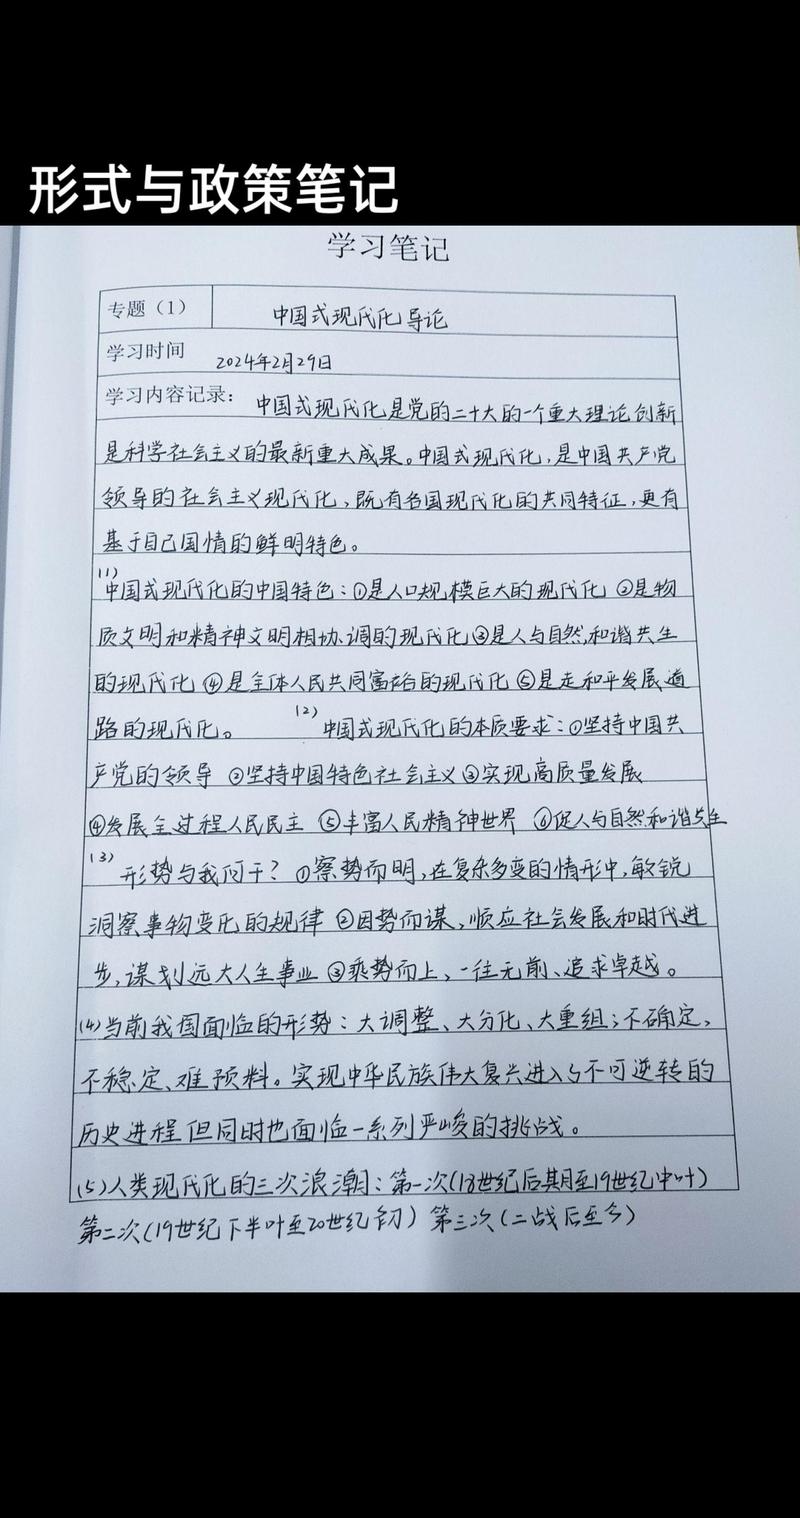 形式与政策笔记
学习笔记
专题（1） 中国式现代化导论
学习时间 2024年2月29日
学习内容记录： 中国式现代化是党的二十大的一个重大理论创新
是科学社会主义的最新重大成果。中国式现代化,是中国共产党
领导的社会主义现代化、既有各国现代化的共同特征,更有
基于自己国情的鲜明特色。
(1)中国式现代化的中国特色：①是人口规模巨大的现代化 ②是物
质文明和精神文明相协调的现代化③是人与自然和谐共生
的现代化④是全体人民共同富裕的现代化⑤是走和平发展道
路的现代化。 (2)中国式现代化的本质要求：①坚持中国共
产党的领导 ②坚持中国特色社会主义③实现高质量发展
④发展全过程人民民主 ⑤丰富人民精神世界 ⑥促人与自然和谐共生
(3)形势与我何干？①察势而明,在复杂多变的情形中,敏锐
洞察事物变化的规律 ②因势而谋、顺应社会发展和时代进
步,谋划远大人生事业 ③乘势而上、一往无前、追求卓越。
(4)当前我国面临的形势：大调整、大分化、大重组；不确定、
不稳定、难预料。实现中华民族伟大复兴进入了不可逆转的
历史进程 但同时也面临一系列严峻的挑战。
(5)人类现代化的三次浪潮：第一次(18世纪后其月至19世纪中叶)
第二次(19世纪下半叶至20世纪初) 第三次(二战后至今)